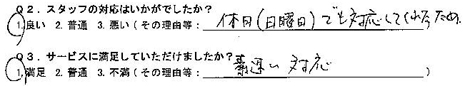 Q2. スタッフの対応はいかがでしたか?
1.良い 2. 普通 3. 悪い (その理由等: 休日(日曜日)でも対応してくれるため.
Q3. サービスに満足していただけましたか?
1.満足 2. 普通 3. 不満 (その理由等: 素速い対応 )